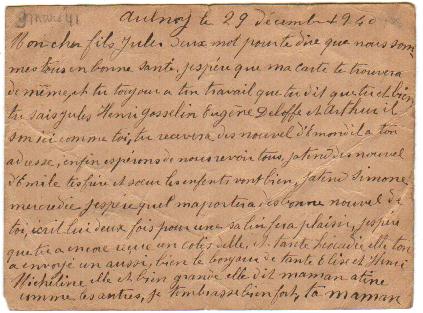 9 Mars 41
Aulnoy le 29 décembre 1940
Mon cher fils Jules deux mot pour te dire que nous som-
mes tous en bonne santé, jespére que ma carte te trouvera
de même, et tu toujour a ton travail que tu dit que tu et bien
tu sais Jules Henri Gosselin Eugène Deloffe et Arthur il
son ici comme toi, tu recevera des nouvel d'Emond il a ton
adresse, enfin espérons de nous revoir tous, jatend des nouvel
d'Emile tes frère et sœur les enfants vont bien, jatend Simone
mercredie jespére quel maportera des bonne nouvel de
toi, écril lui deux fois pour une sa lui fera plaisir, jespére
que tu a encore reçue un colis delle, et tante Léocadie elle ton
a envoyé un aussi, bien le bonjour de tante Elise et Henri
Micheline elle et bien grande elle dit maman a tine
comme les autres, je t'embrasse bien fort, ta maman